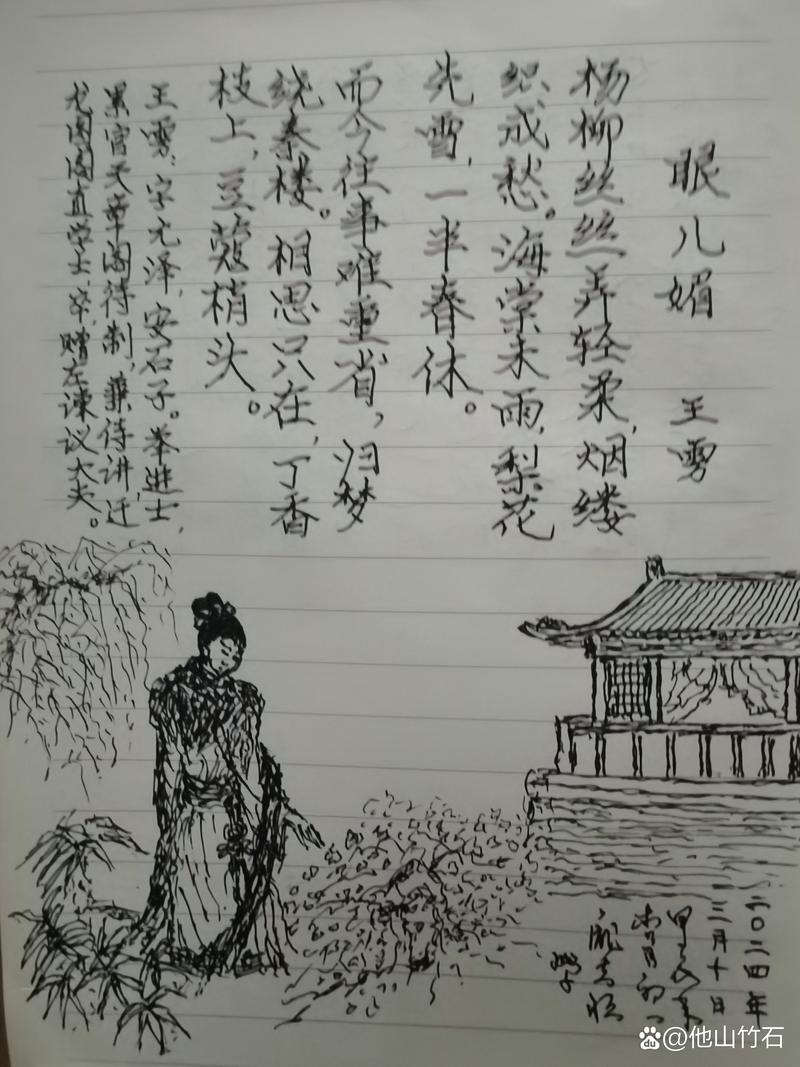 眼儿媚 王雱
杨柳丝丝弄轻柔,烟缕
织成愁。海棠未雨,梨花
先雪,一半春休。
而今往事难重省,归梦
绕秦楼。相思只在,丁香
枝上,豆蔻梢头。
王雱,字元泽,安石子。举进士,
累官天章阁待制,兼侍讲,迁
龙图阁直学士,卒,赠左谏议大夫。
二〇二四年
三月十日
甲辰年
初一
@他山竹石